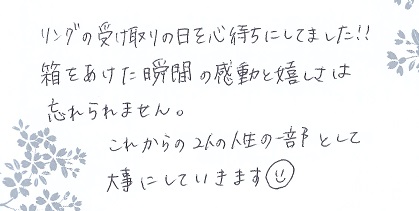 リングの受け取りの日を心待ちにしてました!!
箱をあけた瞬間の感動と嬉しさは
忘れられません。
これからの2人の人生の一部として
大事にしていきます☺